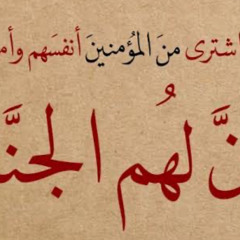 اشترى منَ المؤمنينَ أنفسَهم وأم
نَّ لهُم الجنَّ